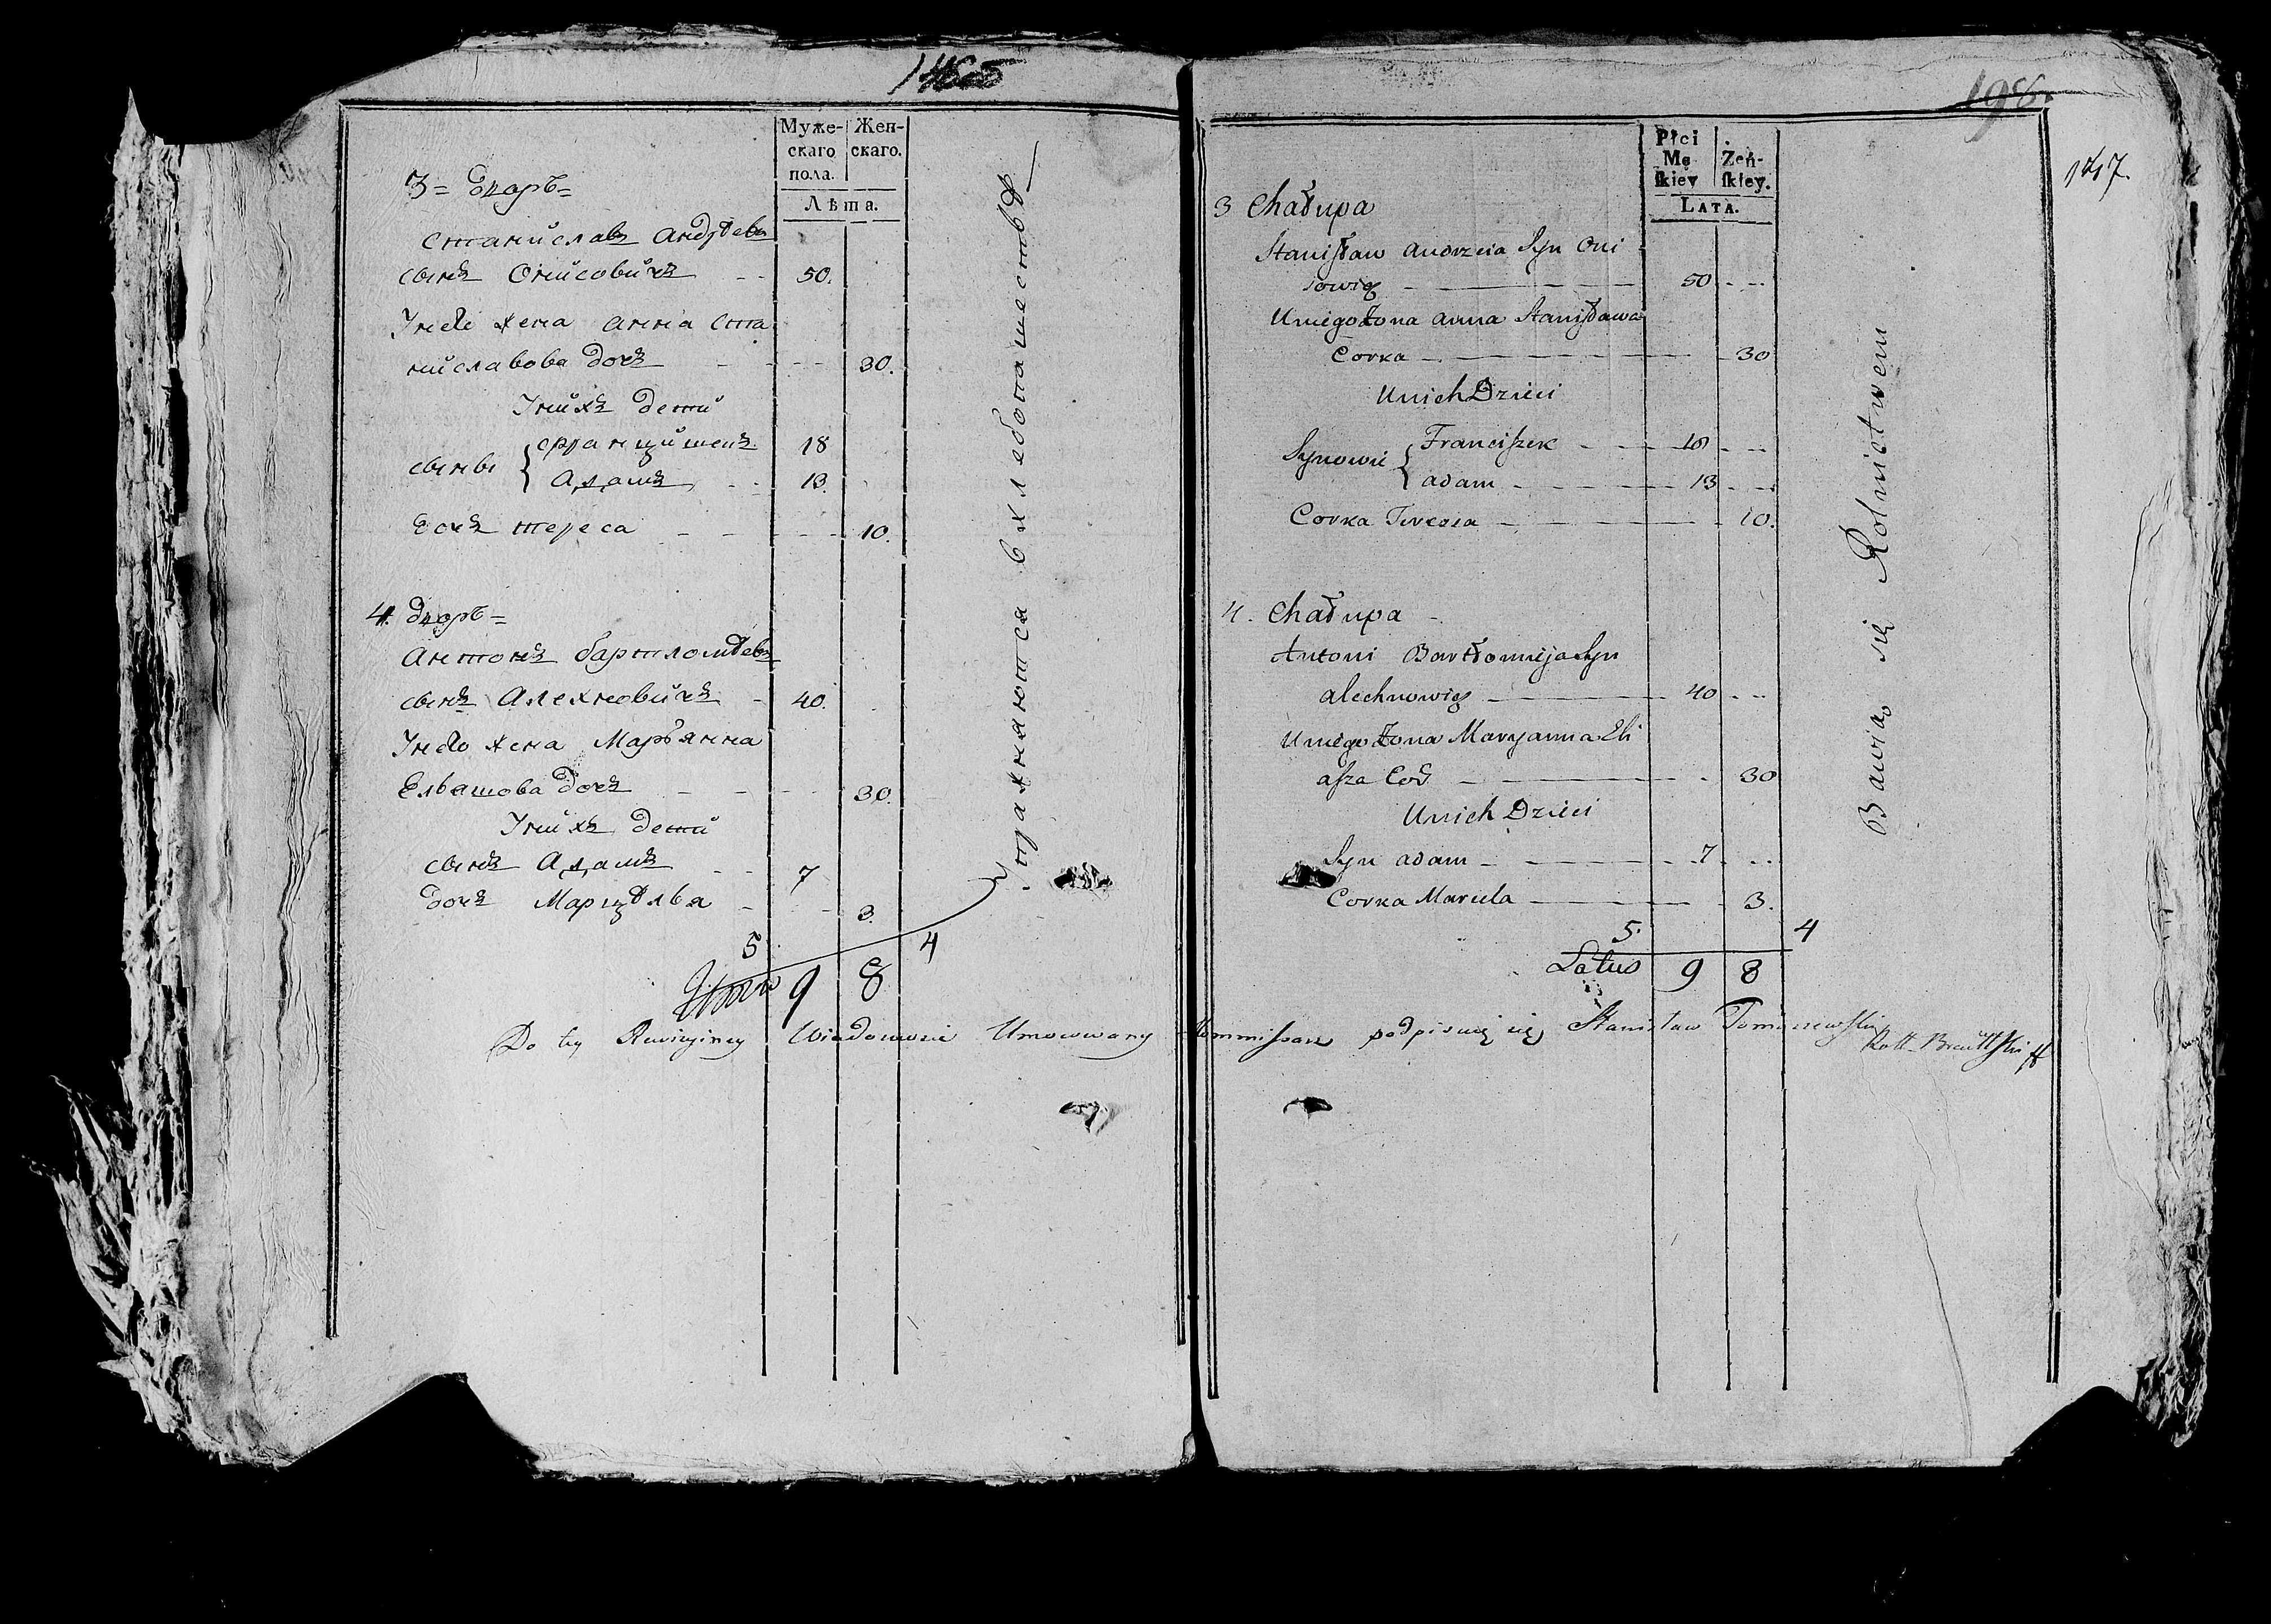 Муже-
скаго
пола.
Жен-
скаго.
Лѣта.
3 = Дворъ =
Станиславъ Андрѣевъ
сынъ Онисовичъ - - 50.
У него жена Анна Ста
ниславова дочь - - - 30.
У нихъ дети
сыны { Францишекъ 18
Адамъ - - 13.
Дочь Тереса - - - - 10.
4. Дворъ =
Антонъ Бартломѣевъ
сынъ Алехновичъ - 40.
У него жена Марьянна
Ельяшова дочь - - - 30.
У нихъ дети
сынъ Адамъ - - 7
дочь Марцѣлья - - 3.
5 4
Итого 9 8
Упражняются в хлебопашествѣ
198.
147.
Płci
Mę
skiey
Żeń-
skiey.
LATA.
3 Chałupa
Stanisław Andrzeia Syn Oni
sowicz - - - 50 - - -
U niego Żona Anna Stanisława
Corka - - - 30
U nich Dzieci
Synowie { Franciszek - - 18 - - -
Adam - - - 13 - - -
Corka Teresa - - - 10.
4. Chałupa -
Antoni Bartłomieja Syn
Alechnowicz - - 40 - - -
U niego Żona Maryanna Eli
asza Cor - - - 30
U nich Dzieci
Syn Adam - - - 7 - - -
Corka Marcela - - - 3.
5. 4
Latus 9 8
Bawią się Rolnictwem
Do tey Rewizyiney Wiadomości Umocowany Kommissarz podpisuję się Stanisław Tomaszewski